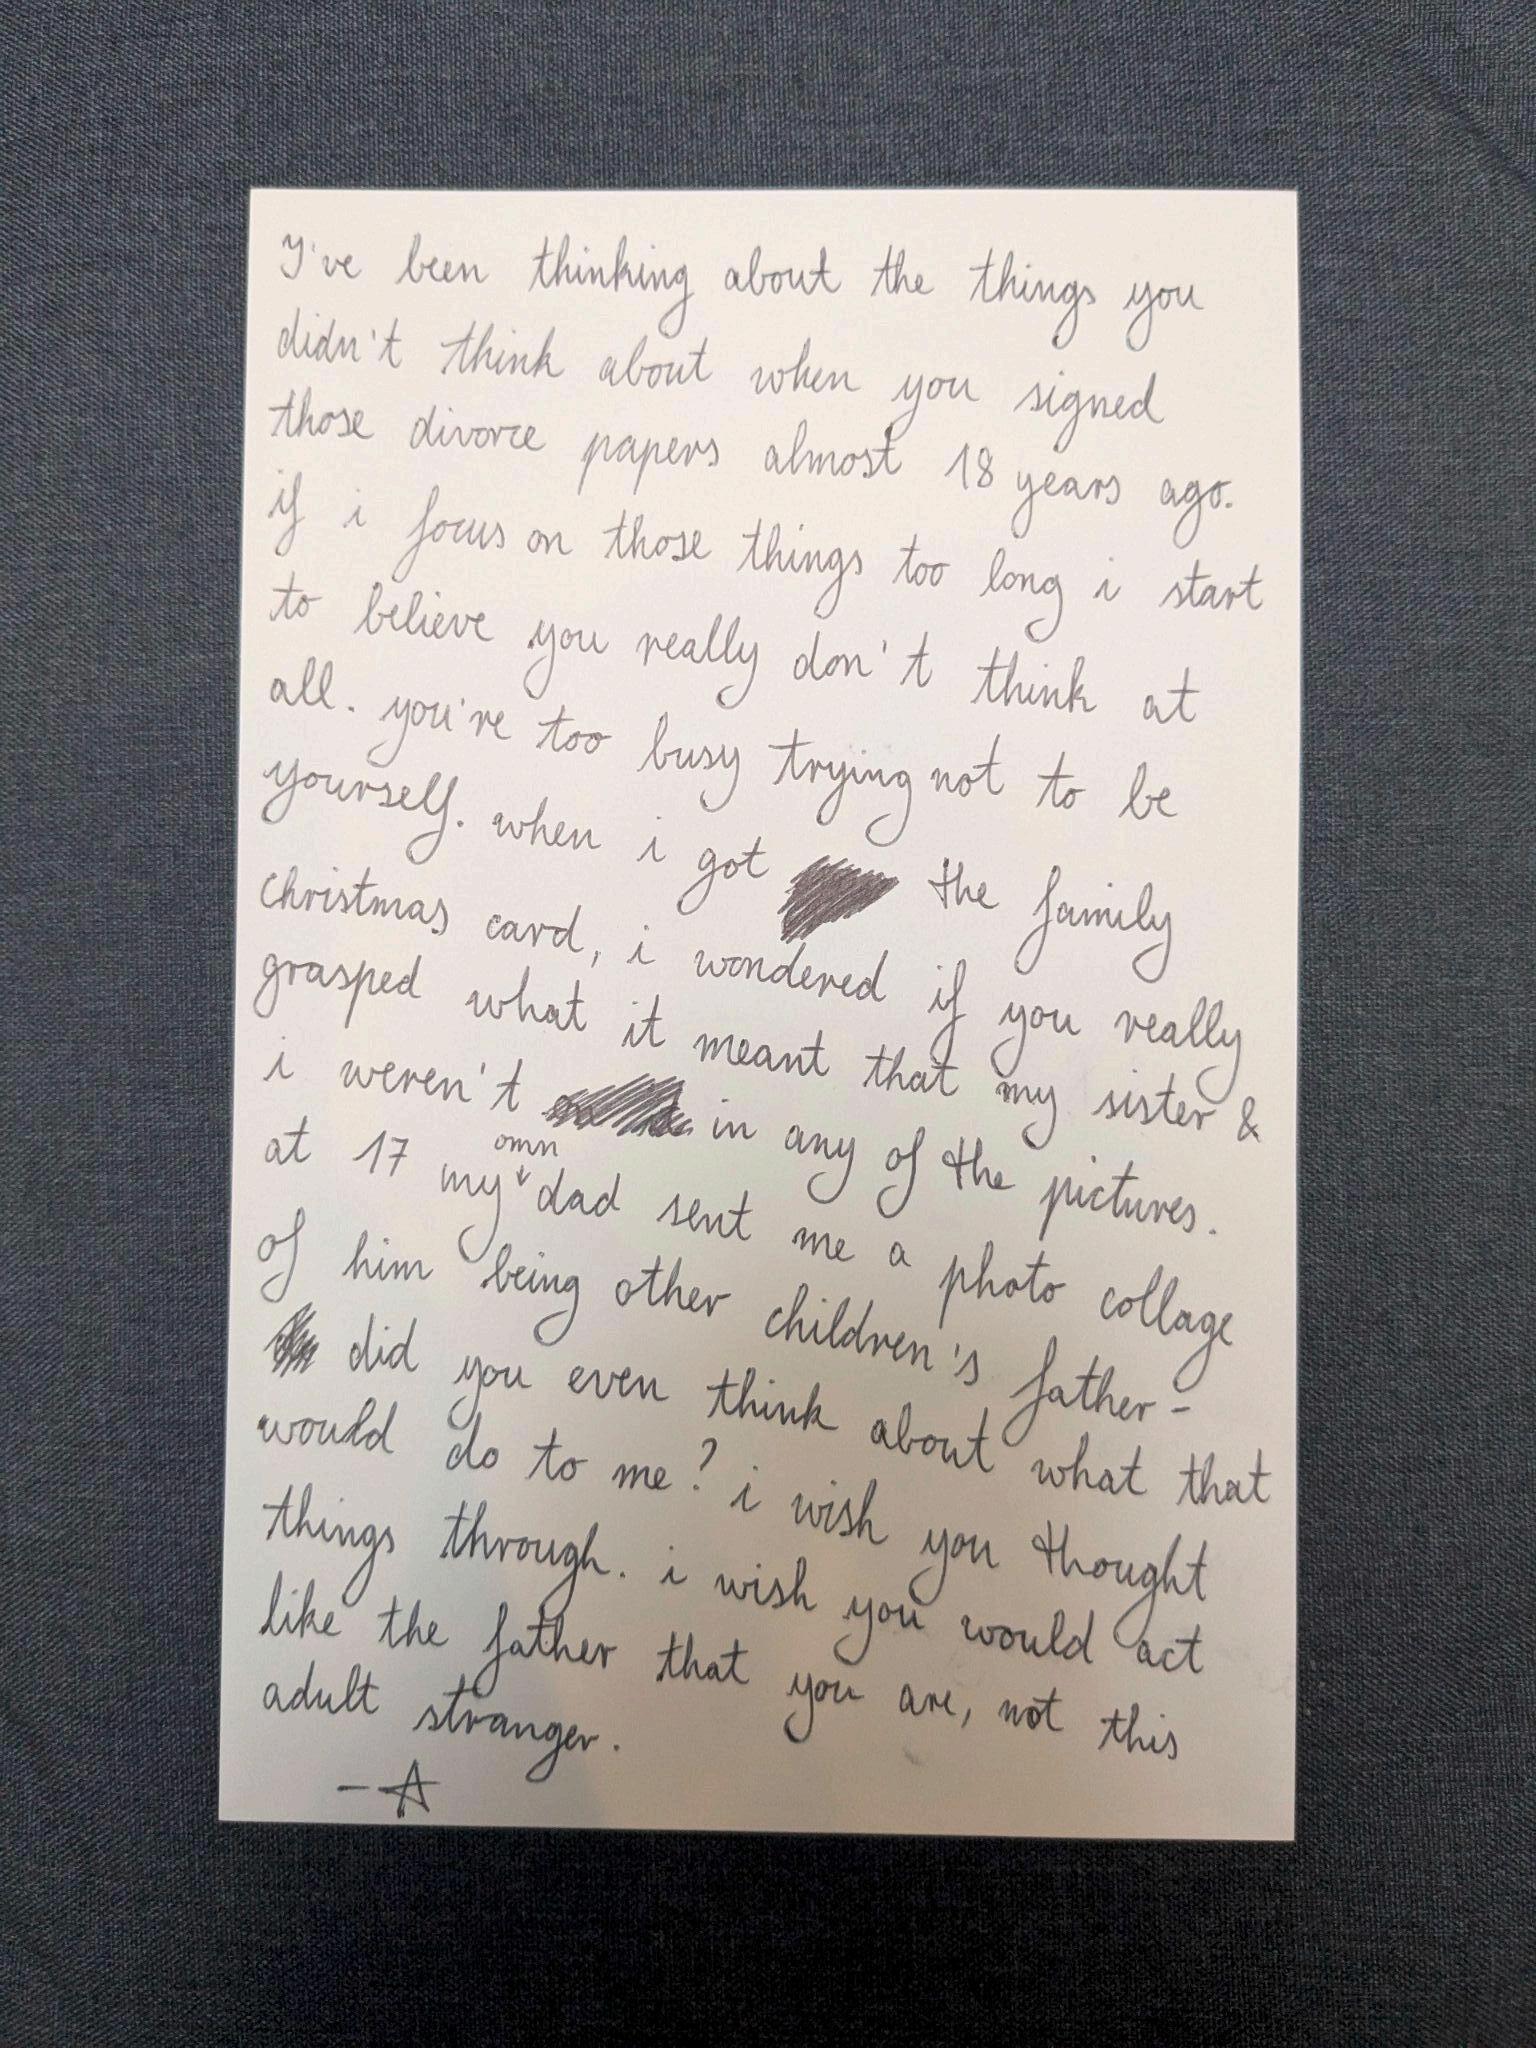 I've been thinking about the things you
didn't think about when you signed
those divorce papers almost 18 years ago.
if i focus on those things too long i start
to believe you really don't think at
all. you're too busy trying not to be
yourself. when i got the family
christmas card, i wondered if you really
grasped what it meant that my sister &
i weren't in any of the pictures.
at 17 my own dad sent me a photo collage
of him being other children's father -
did you even think about what that
would do to me? i wish you thought
things through. i wish you would act
like the father that you are, not this
adult stranger.
- A